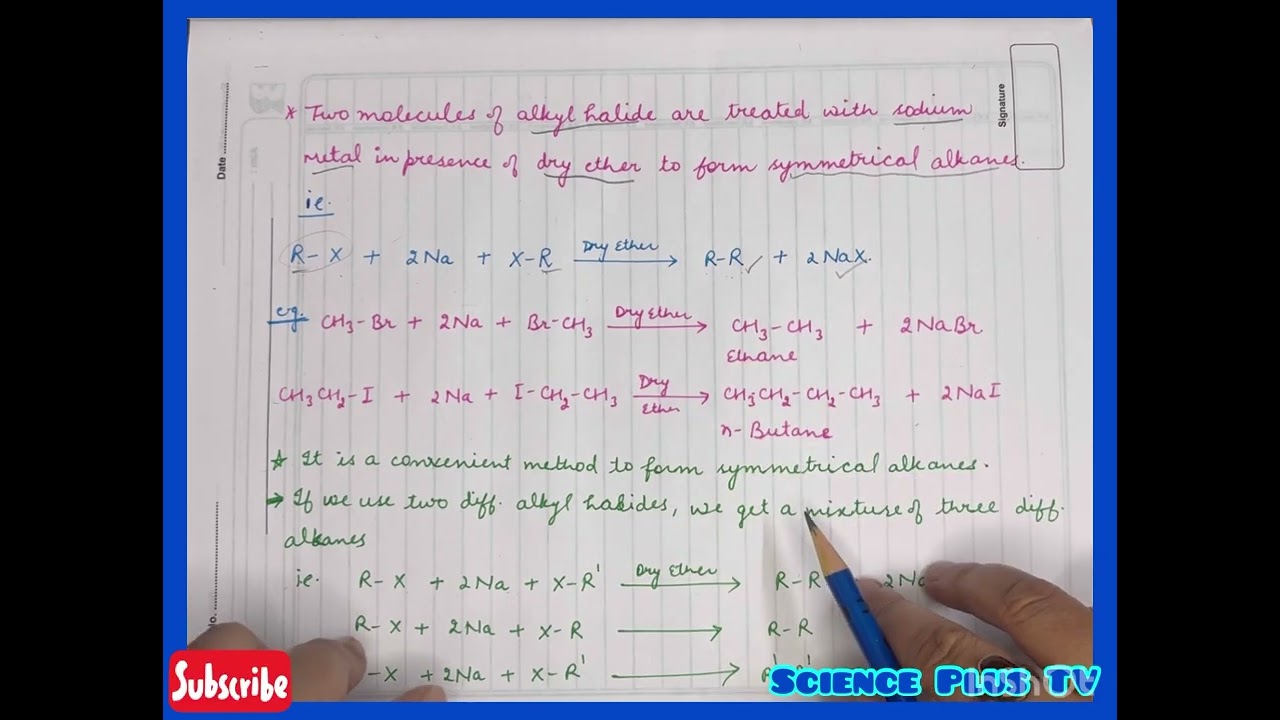 Date
Signature
* Two molecules of alkyl halide are treated with sodium
metal in presence of dry ether to form symmetrical alkanes.
ie.
R-X + 2Na + X-R Dry Ether → R-R ✓ + 2NaX. ✓
eg. CH₃-Br + 2Na + Br-CH₃ Dry Ether → CH₃-CH₃ + 2NaBr
Ethane
CH₃CH₂-I + 2Na + I-CH₂-CH₃ Dry Ether → CH₃CH₂-CH₂-CH₃ + 2NaI
n-Butane
* It is a convenient method to form symmetrical alkanes.
→ If we use two diff. alkyl halides, we get a mixture of three diff.
alkanes
ie. R-X + 2Na + X-R' Dry Ether → R-R 2Na
R-X + 2Na + X-R → R-R
-X + 2Na + X-R' →
No.
Subscribe
Science Plus TV